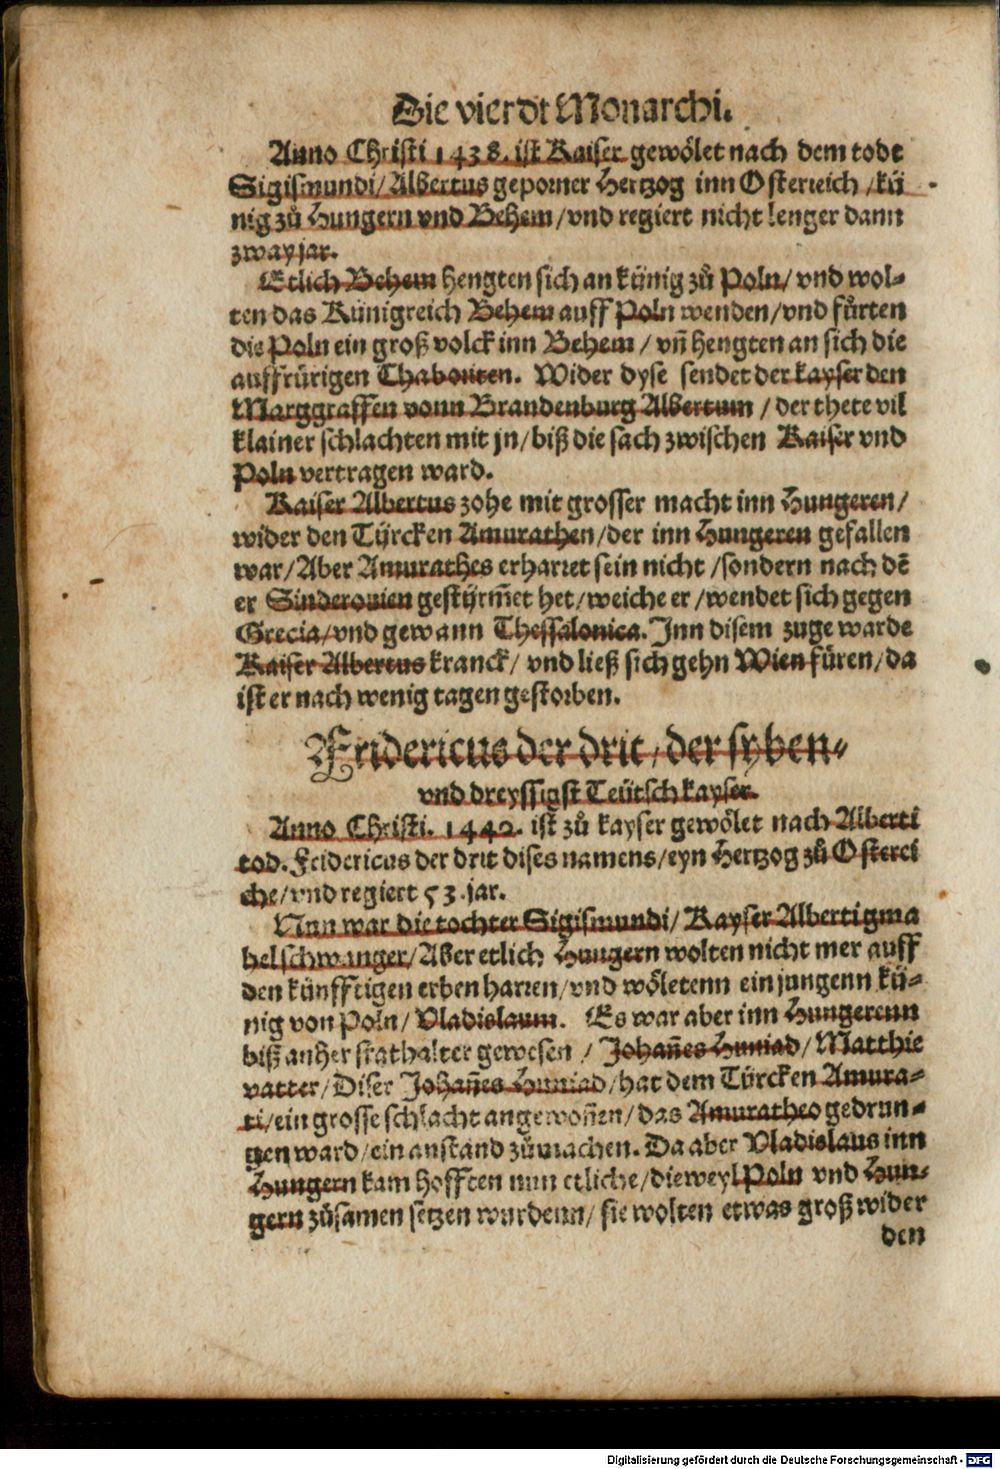 Die vierdt Monarchi.
Anno Christi 1438. ist Kaiser gewölet nach dem todt
Sigismundi/ Albertus geporner Hertzog inn Osterreich /kü
nig zů Hungern vnd Behem/vnd regiert nicht lenger dann
zway jar.
Etlich Behem hengten sich an künig zů Poln/ vnd wol-
ten das Künigreich Behem auff Poln wenden/vnd fůrten
die Poln ein groß volck inn Behem/ vñ hengten an sich die
auffrürigen Thaboriten. Wider dyse sendet der kayser den
Marggraffen vonn Brandenburg Albertum /der thete vil
klainer schlachten mit jn/biß die sach zwischen Kaiser vnd
Poln vertragen ward.
Kaiser Albertus zohe mit grosser macht inn Hungeren/
wider den Türcken Amurathen/der inn Hungeren gefallen
war/Aber Amurathes erharret sein nicht /sondern nach dē
er Sinderouien gestürm̄et het/weiche er/wendet sich gegen
Grecia/vnd gewann Thessalonica. Inn disem zuge warde
Kaiser Albertus kranck/ vnd ließ sich gehn Wien füren/da
ist er nach wenig tagen gestorben.
Fridericus der drit/der syben-
vnd dreyssigst Teütsch kayser.
Anno Christi. 1440. ist zů kayser gewölet nach Alberti
tod. Fridericus der drit dises namens/eyn Hertzog zů Osterei
che/vnd regiert 53.jar.
Nun war die tochter Sigismundi/ Kayser Alberti gma
hel schwanger/Aber etlich Hungern wolten nicht mer auff
den künfftigen erben harren/vnd wöletenn ein jungenn kü-
nig von Poln/ Vladislaum. Es war aber inn Hungerenn
biß anher stathalter gewesen / Johañes Huniad/ Matthie
vatter/Diser Johañes Huniad/hat dem Türcken Amura-
ti/ein grosse schlacht angewoñen/das Amuratheo gedrun-
gen ward/ein anstand zůmachen. Da aber Vladislaus inn
Hungern kam hofften nun etliche/dieweyl Poln vnd Hun-
gern zůsamen setzen wurdenn/ sie wolten etwas groß wider
den
Digitalisierung gefördert durch die Deutsche Forschungsgemeinschaft - DFG